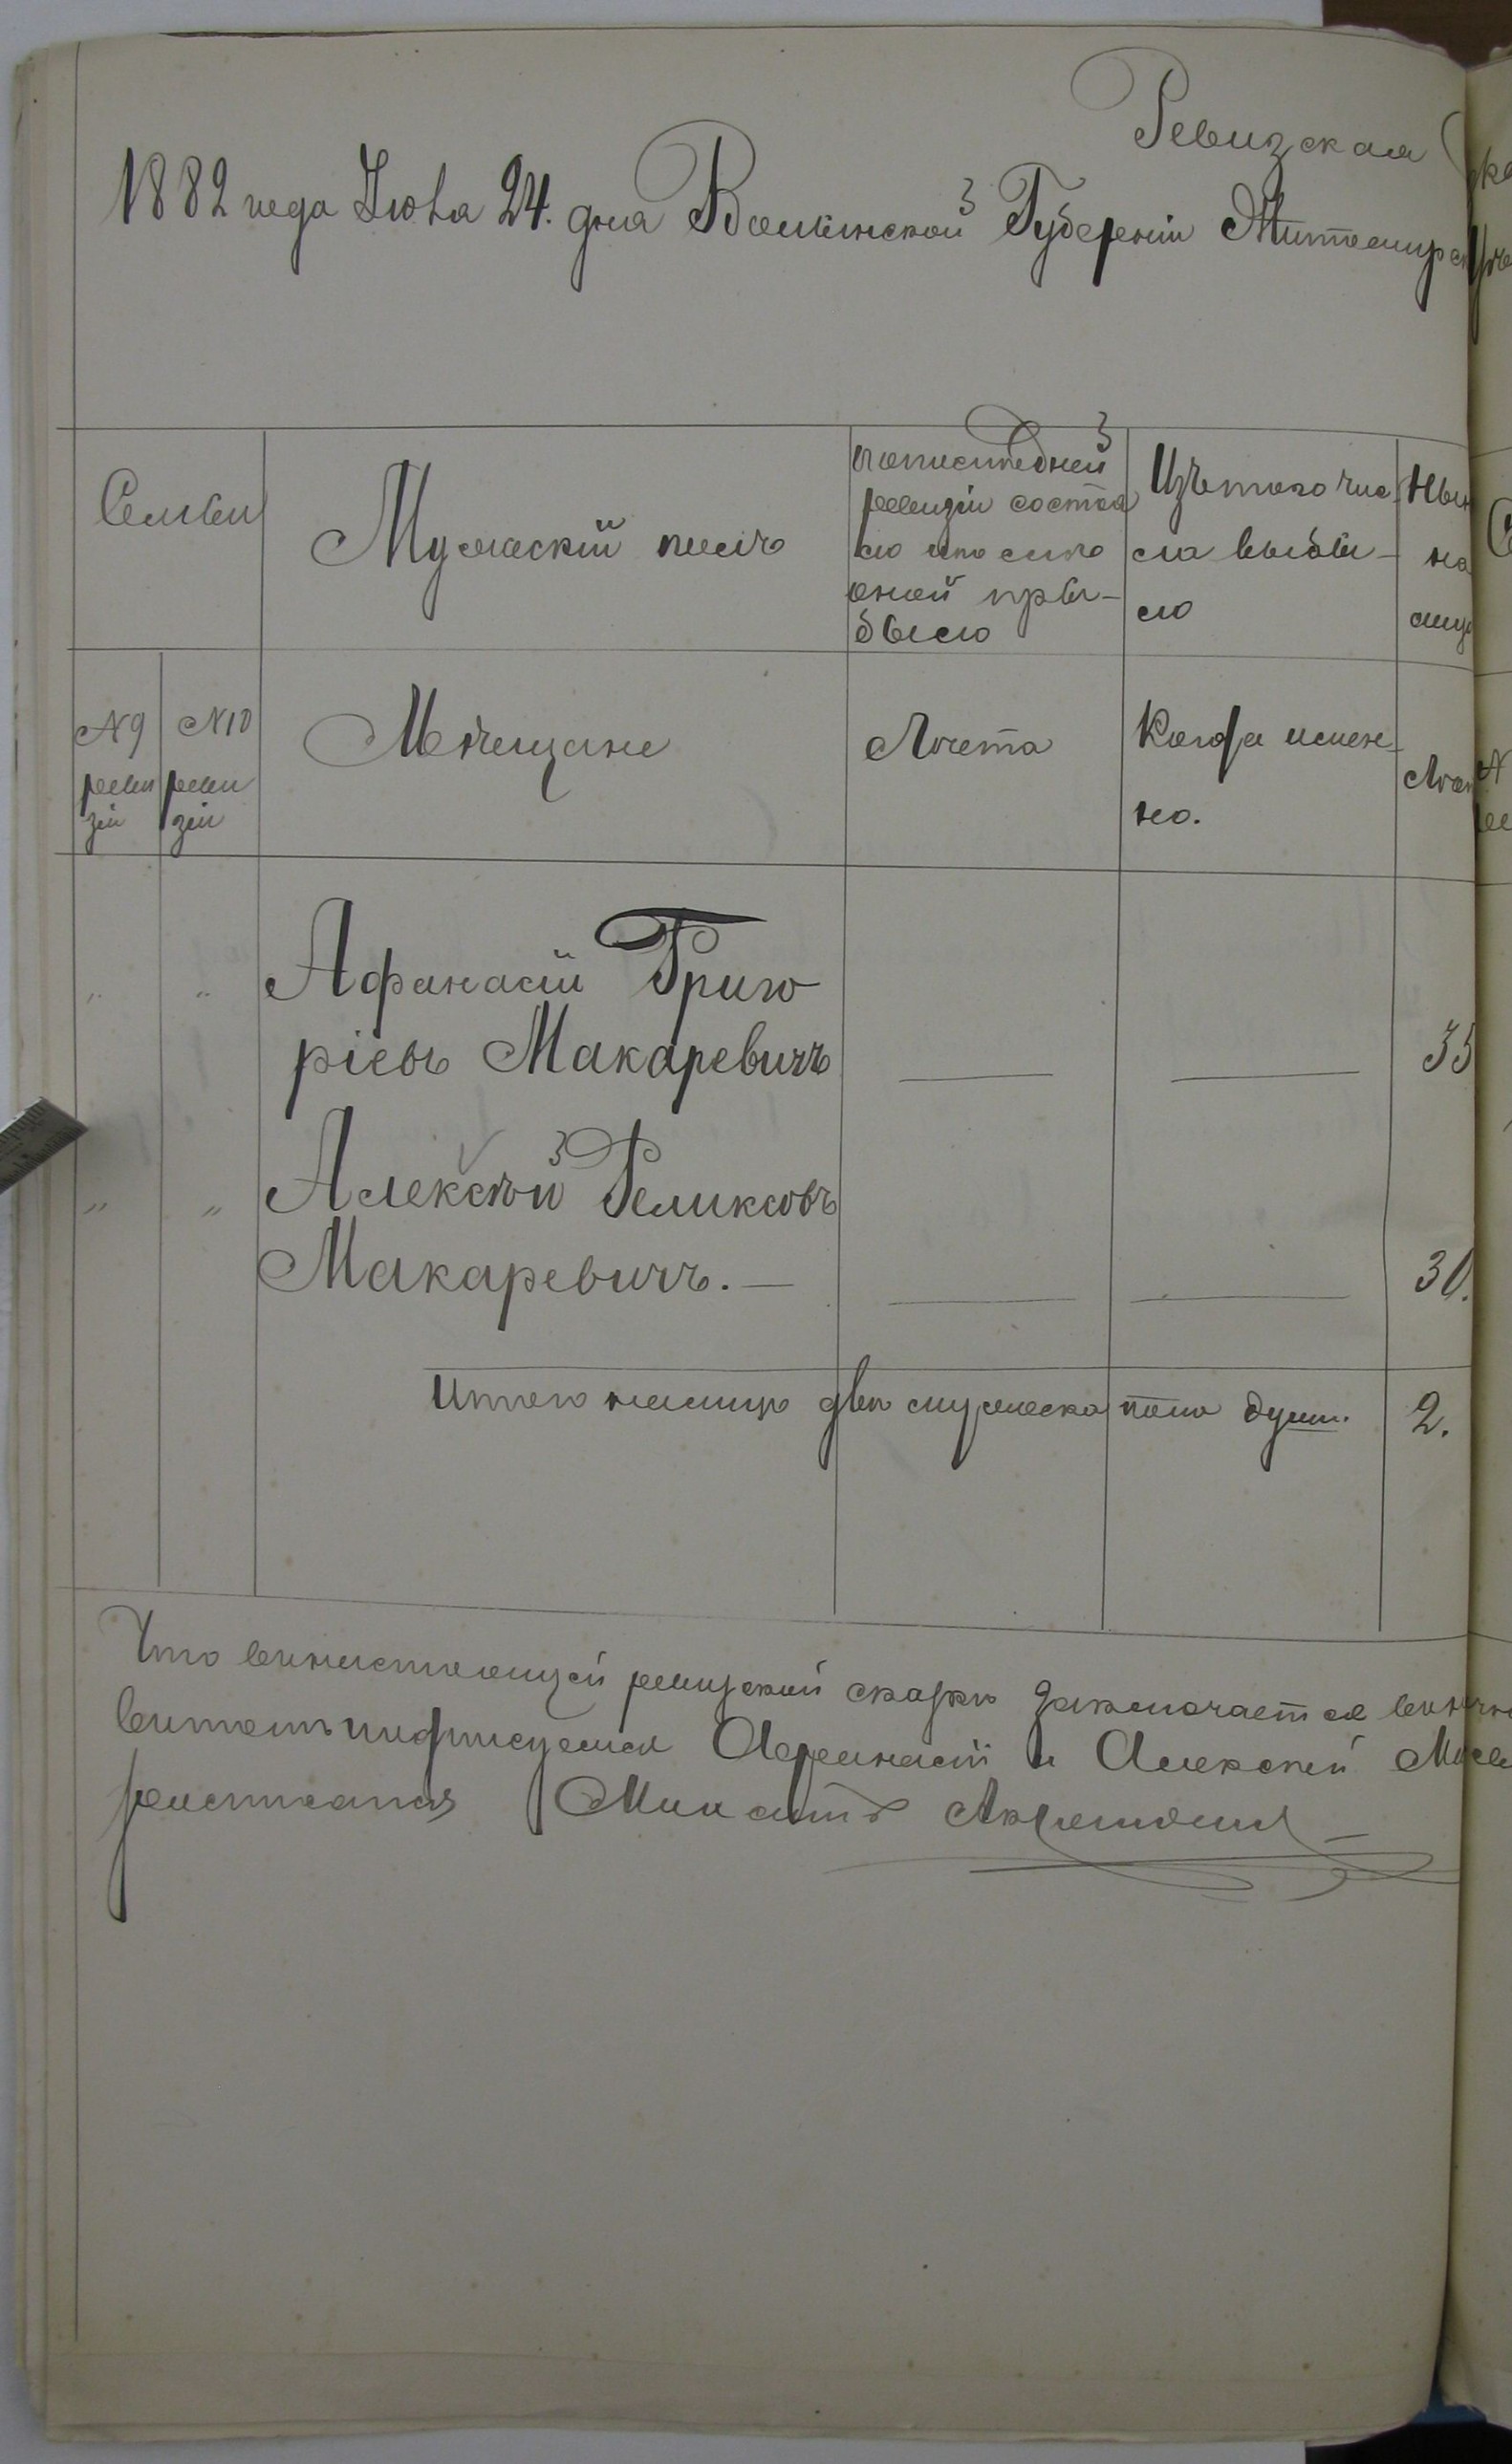 Ревизская
1882 года Іюля 24. дня Волынской Губерніи Житомирск
Семьи
Мужескій полъ
По последней
ревизіи состоя
ло и после
оной при-
было
Изъ того чис
ла выбы-
ло
Нын
на
лиц
№ 9
реви
зіи
№ 10
реви
зіи
Мѣщане
Лѣта
Когда имен-
но.
Лѣт
" " Афанасій Григо
ріевъ Макаревичъ — — 35
" " Алексѣй Феликсовъ
Макаревичъ. — — — 30.
Итого налицо двѣ мужеска пола душ. 2.
Что въ настоящей ревизской сказкѣ заключается
въ томъ подписуемся Афанасій и Алексѣй